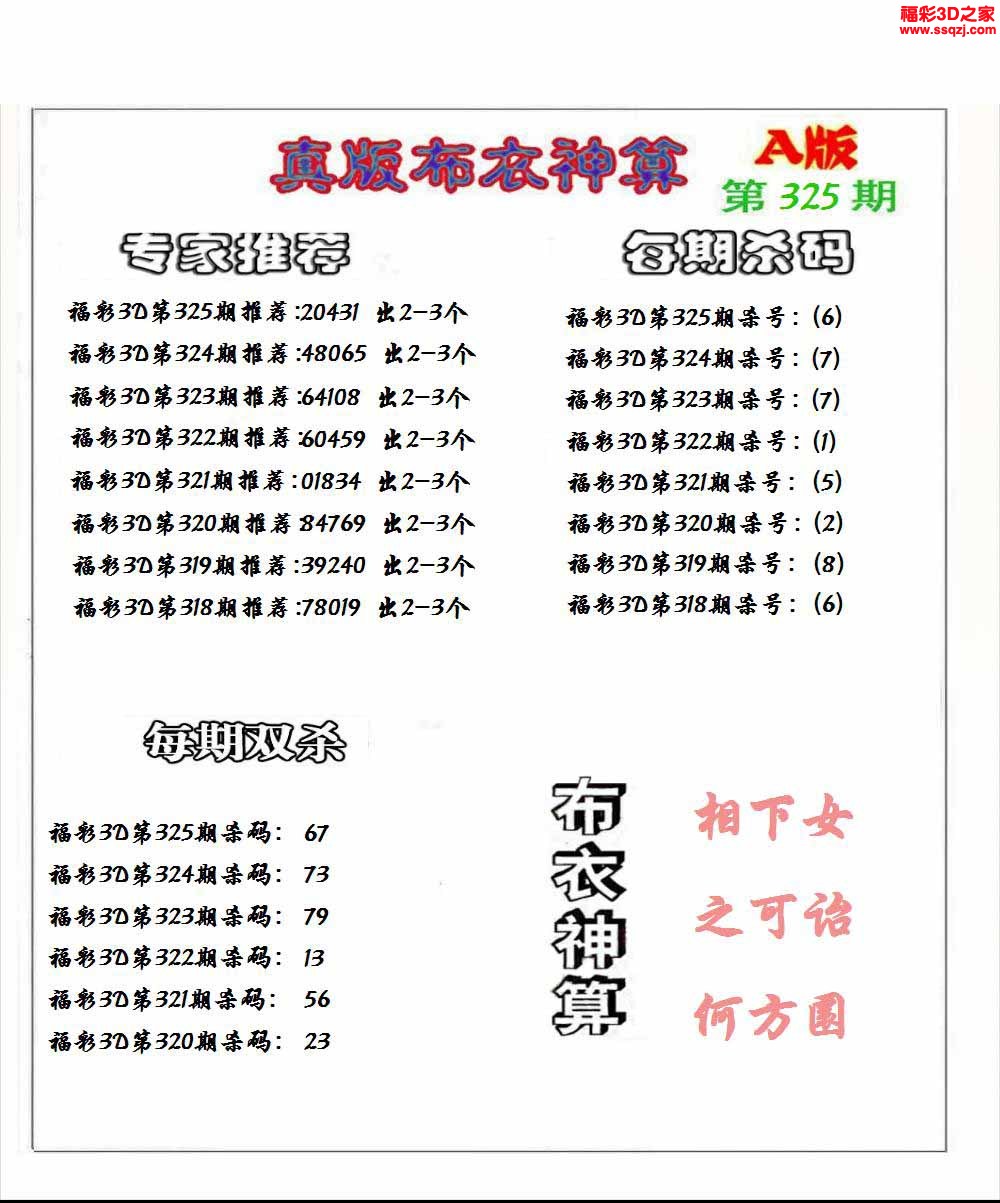 福彩3D之家
www.ssqzj.com
真版布衣神算
A版
第 325 期
专家推荐
福彩3D第325期推荐:20431 出2-3个
福彩3D第324期推荐:48065 出2-3个
福彩3D第323期推荐:64108 出2-3个
福彩3D第322期推荐:60459 出2-3个
福彩3D第321期推荐:01834 出2-3个
福彩3D第320期推荐:84769 出2-3个
福彩3D第319期推荐:39240 出2-3个
福彩3D第318期推荐:78019 出2-3个
每期杀码
福彩3D第325期杀号：(6)
福彩3D第324期杀号：(7)
福彩3D第323期杀号：(7)
福彩3D第322期杀号：(1)
福彩3D第321期杀号：(5)
福彩3D第320期杀号：(2)
福彩3D第319期杀号：(8)
福彩3D第318期杀号：(6)
每期双杀
福彩3D第325期杀码： 67
福彩3D第324期杀码： 73
福彩3D第323期杀码： 79
福彩3D第322期杀码： 13
福彩3D第321期杀码： 56
福彩3D第320期杀码： 23
布衣神算
相下女
之可诒
何方圆